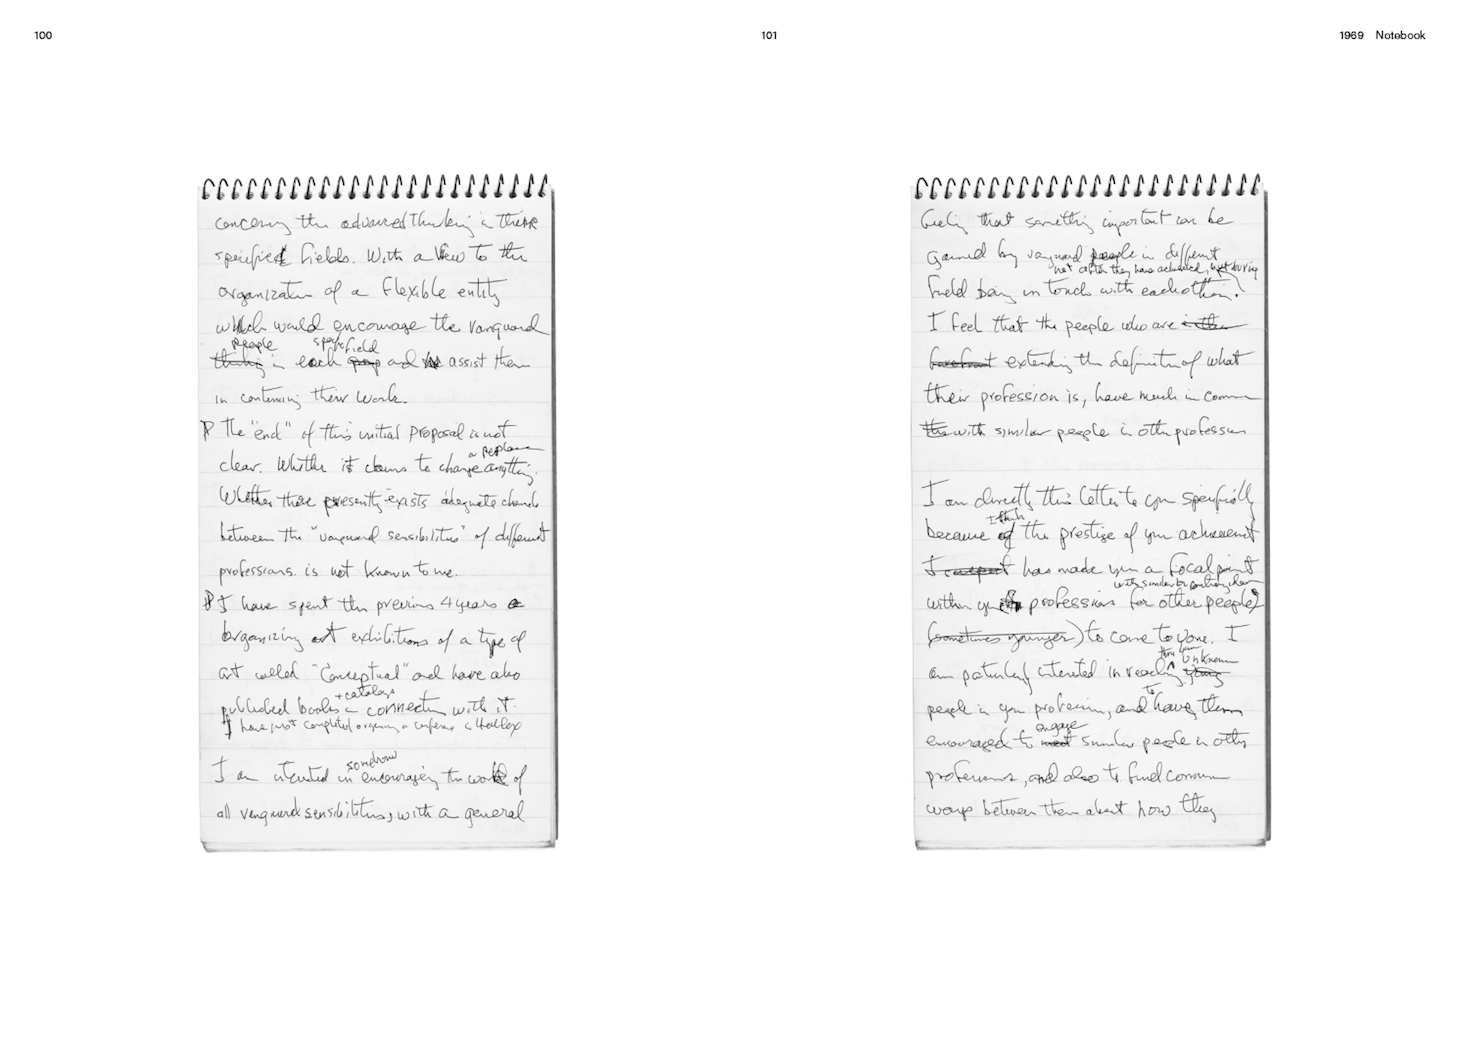 100
concerning the advanced thinking in these
specific fields. With a view to the
organization of a flexible entity
which would encourage the vanguard
people specific field
thinking in each group and assist them
in continuing their work.
The "end" of this initial proposal is not
or replace
clear. Whether it claims to change anything.
Whether there presently exists adequate channels
between the "vanguard sensibilities" of different
professions. is not known to me.
I have spent the previous 4 years
organizing art exhibitions of a type of
art called "Conceptual" and have also
+ catalogs
published books in connection with it.
I have just completed organizing a conference in Halifax
somehow
I am interested in encouraging the work of
all vanguard sensibilities, with a general
101
1969 Notebook
feeling that something important can be
gained by vanguard people in different
not after they have achieved, but during
field being in touch with each other.
I feel that the people who are in the
forefront extending the definition of what
their profession is, have much in common
the with similar people in other professions
I am directly this letter to you specifically
I think
because of the prestige of your achievement
I suspect has made you a focal point
with similar or
within your profession for other people
(sometimes younger) to come to you. I
thru you unknown
am particularly interested in reaching young
people in your profession, and to have them
engage
encouraged to meet similar people in other
professions, and also to find common
ways between them about how they